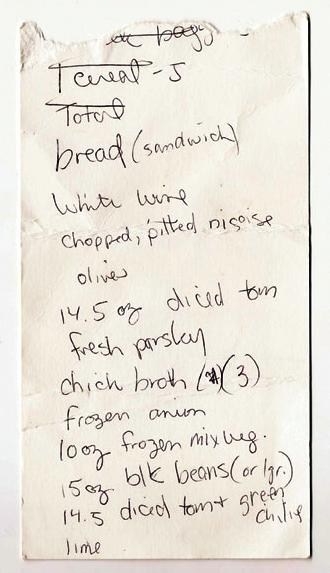 T cereal - J
Total
bread (sandwich)
White wine
chopped, pitted niçoise
olives
14.5 oz diced tom
fresh parsley
chick broth (3)
frozen onion
10 oz frozen mix veg.
15 oz blk beans (or lgr.)
14.5 diced tom + green
chilis
lime